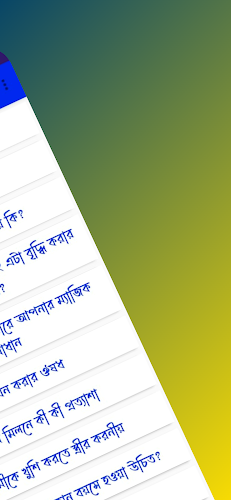 কি?
এটা বুদ্ধি করার
?
রে আপনার ম্যাজিক
াধান
ন করার ঔষধ
মিলনে কী কী প্রত্যাশা
ীকে খুশি করতে স্ত্রীর করনীয়
ান বয়সে হওয়া উচিত?